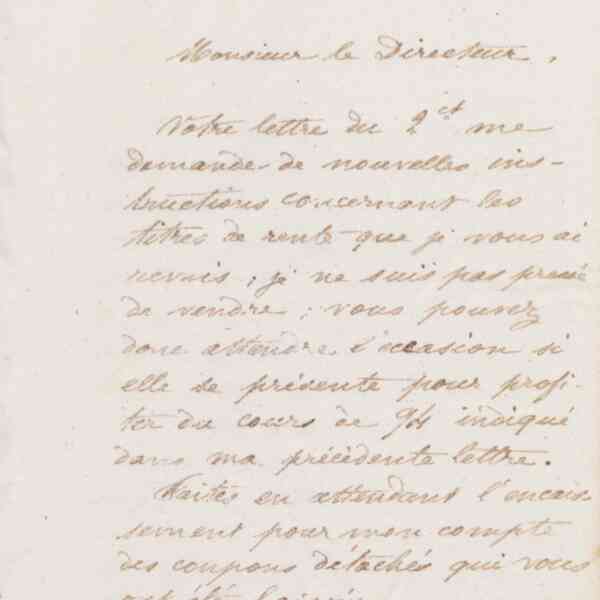 Monsieur le Directeur,
Votre lettre du 2 ct me
demande de nouvelles ins-
tructions concernant les
titres de rente que je vous ai
remis ; je ne suis pas pressé
de vendre ; vous pouvez
donc attendre l'occasion si
elle se présente pour profi-
ter du cours de 94 indiqué
dans ma précédente lettre.
Faites en attendant l'encais-
sement pour mon compte
des coupons détachés qui vous
ont été